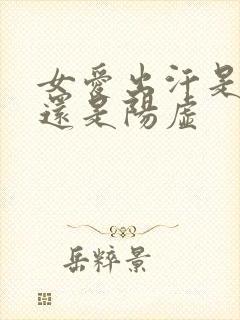 女愛出汗是
還是陽虛
岳粹景